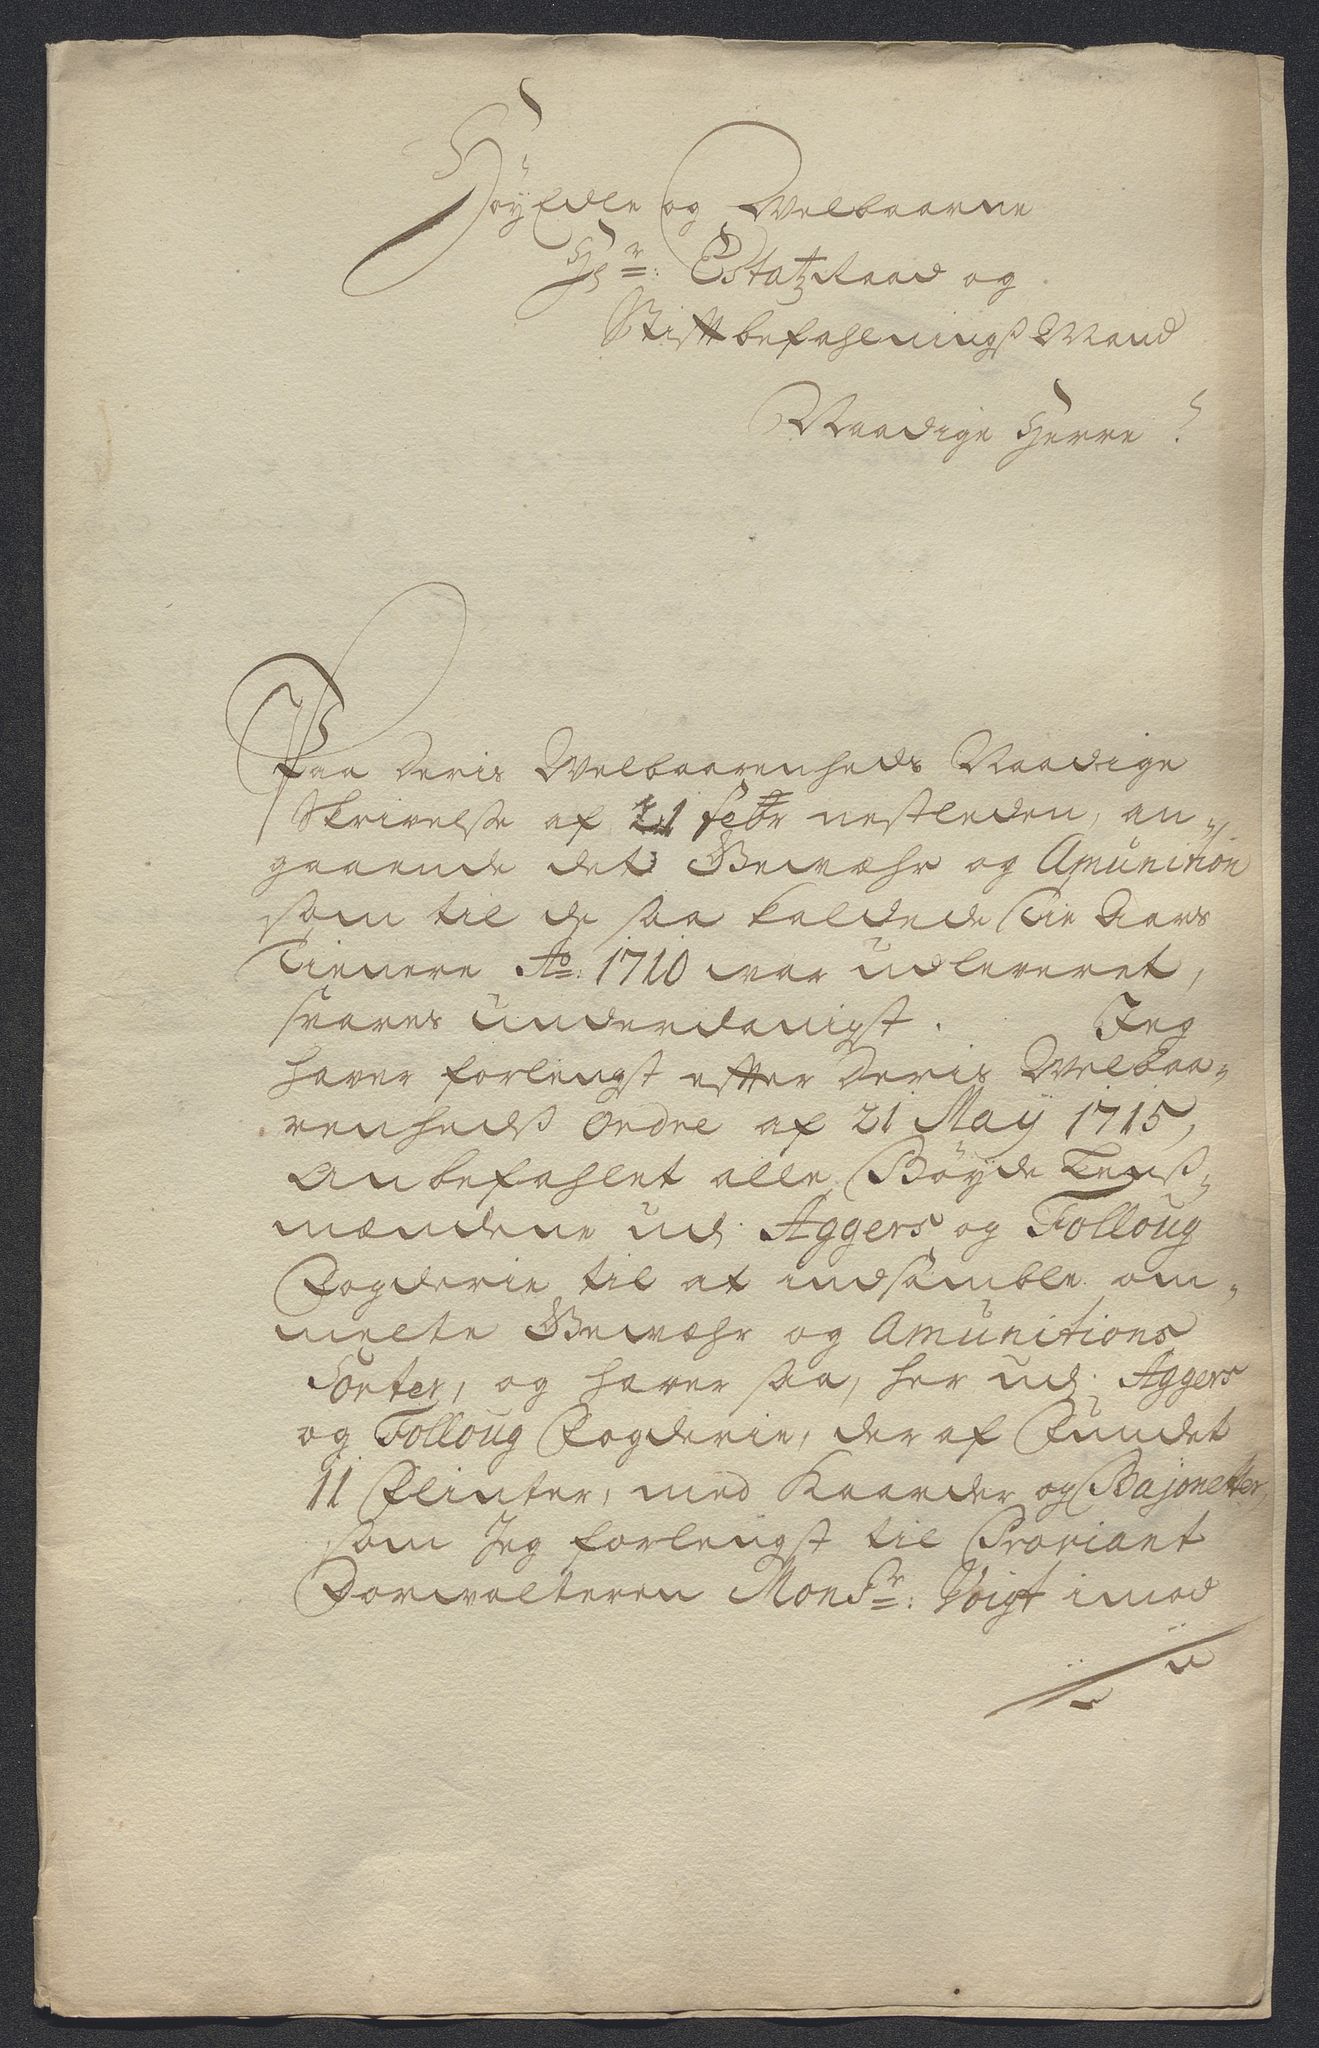 HöyEdle og Welbaarne
Hr: EstatzRaad og
Stiftbefahlningß Mand
Naadige Herre!
Paa Deris Welbaarenheds Naadige
Skrivelse af 21 febr nestleden, an-
gaaende det Gewæhr og Amunition
som til de saa kaldede Tie Aars
Tienere Ao: 1710 war udleveret,
svares underdanigst. Jeg
haver forlengst efter Deris Welbaa-
renhedß Ordre af 21 Maÿ 1715,
Anbefahlet alle Böyde Lenß-
mændene ud Aggers og Folloug
Fogderie til at indsamble om-
melte Gewæhr og Amunitions
Sorter, og haver saa, her ud Aggers
og Folloug Fogderie, der af Fundet
11 Flinter, med Kaarder og Bajonetter,
som Jeg forlengst til Proviant
Forvalteren Monsr: Voigt imod